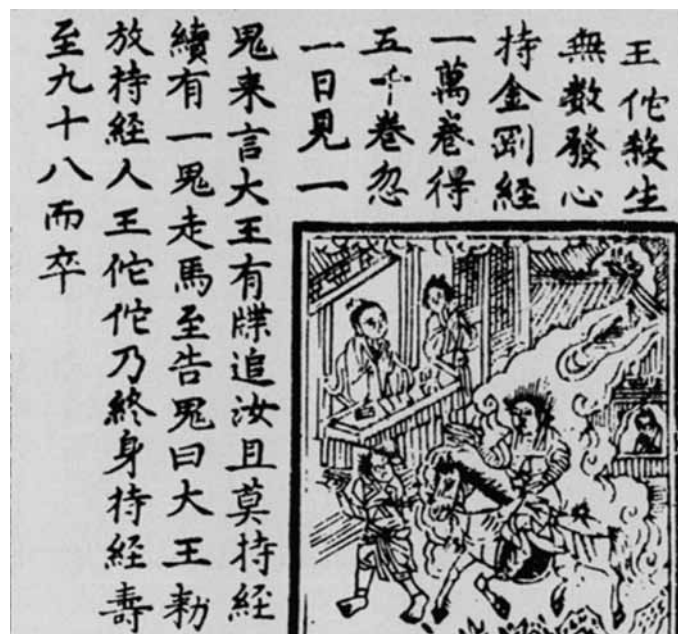 王佗殺生
無數發心
持金剛經
一萬卷得
五千卷忽
一日見一
鬼来言大王有牒追汝且莫持經
續有一鬼走馬至告鬼曰大王勑
放持經人王佗佗乃終身持經壽
至九十八而卒